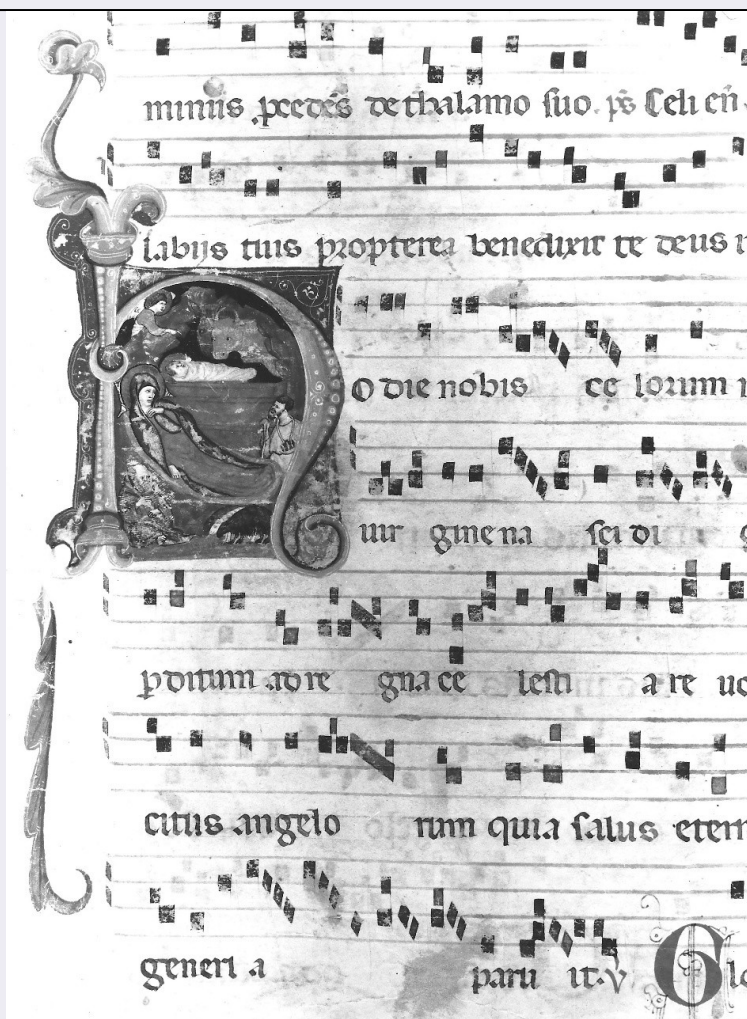 minus ꝓcedẽs de thalamo suo. p̃s Celi eñ
labijs tuis propterea benedixit te deus
Hodie nobis ce lorum
uir gine na sci di
ꝑditum ad re gna ce lesti a re uo
citus angelo rum quia salus etern
generi a paru it. V Glo